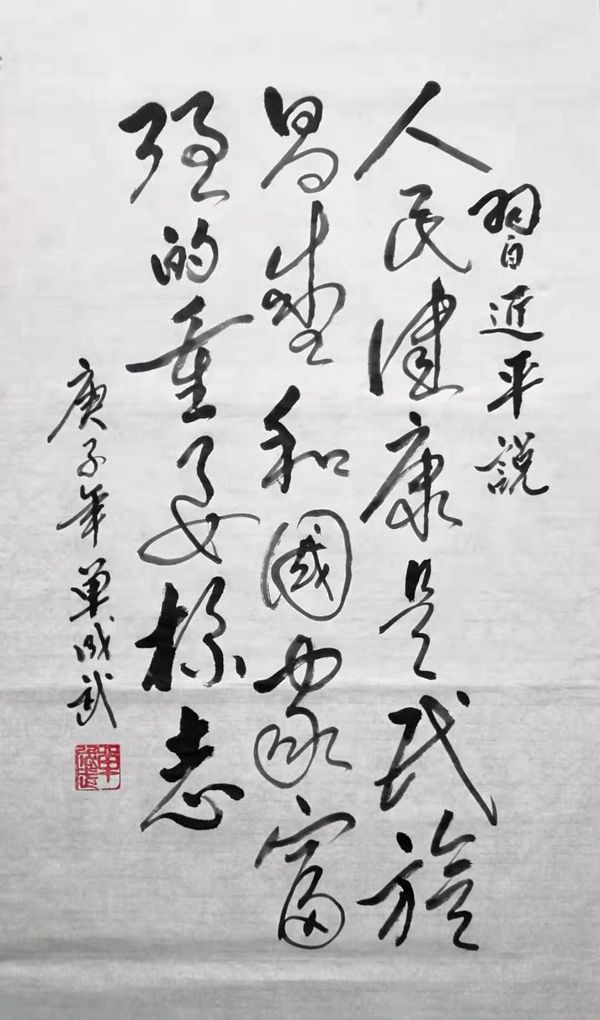 習近平説
人民健康是民族
昌盛和國家富
强的重要标志
庚子年單成武